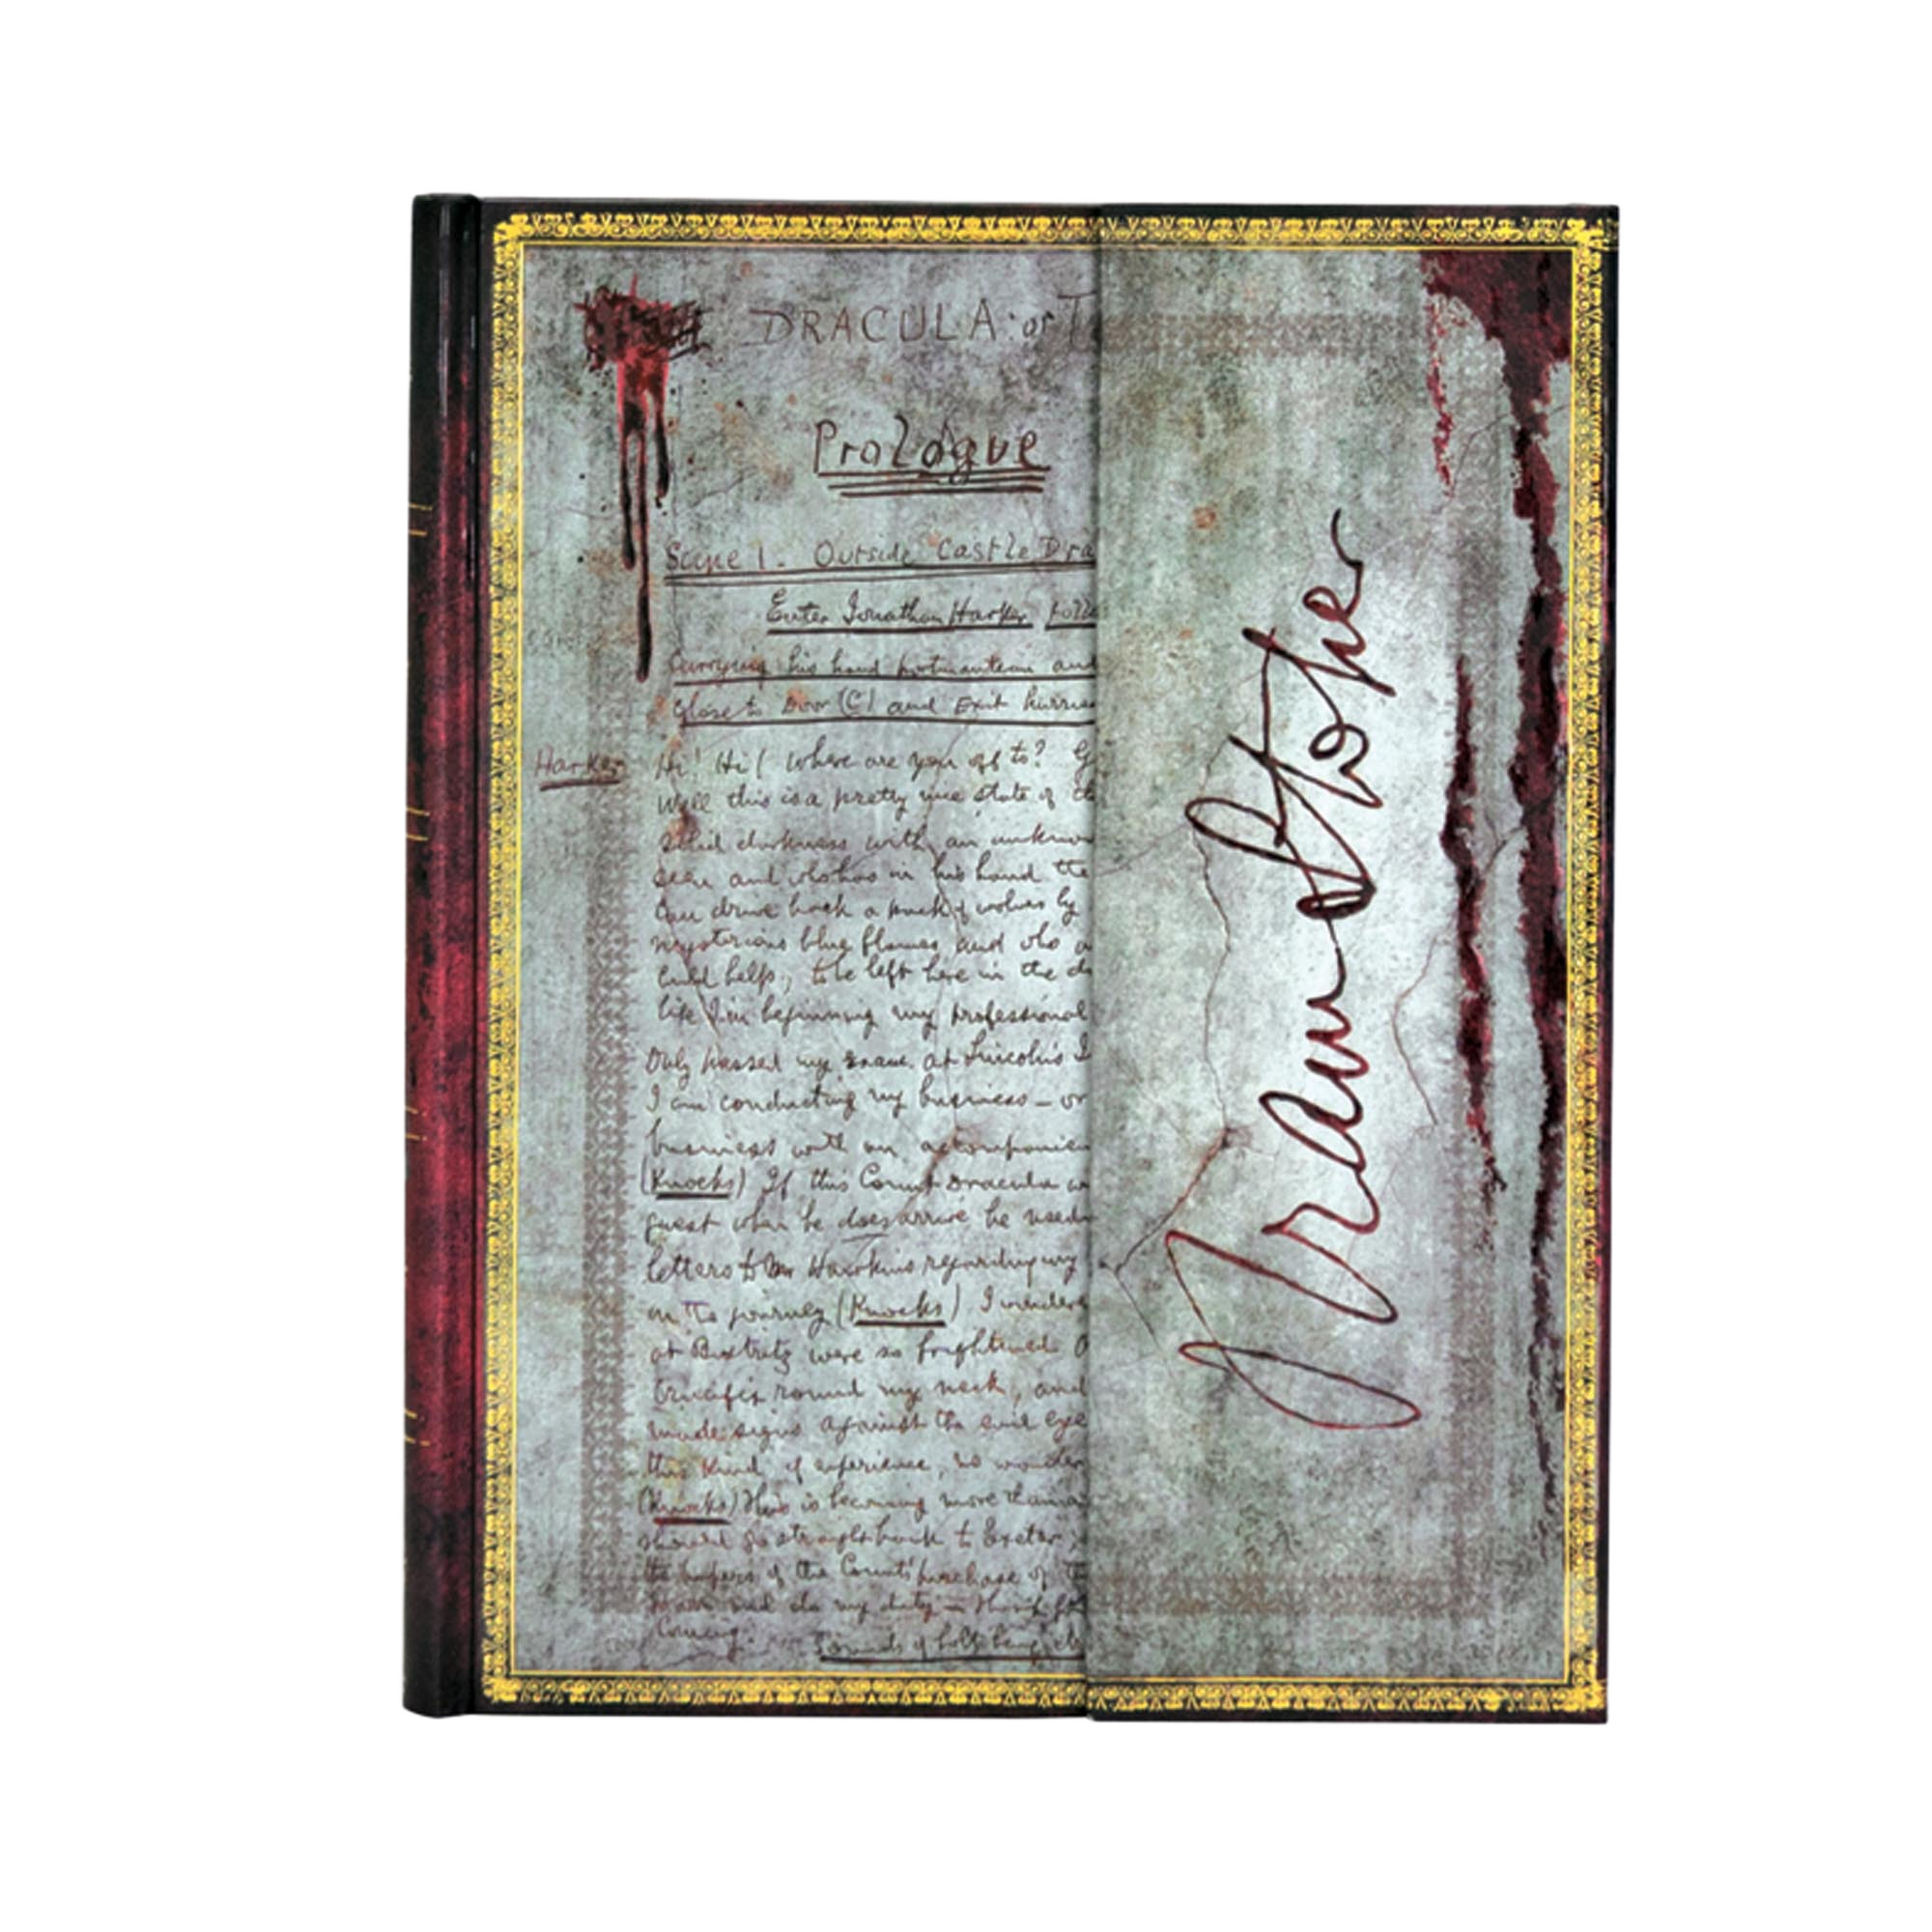 DRACULA or T
Prologue
Scene 1. Outside Castle Dra
Enter Jonathan Harker follo
Carrying his hand portmanteau and
Close to Door (C) and Exit hurrie
Harker
Hi! Hi! where are you off to? G
Well this is a pretty nice state of th
solid darkness with an unknow
seen and who has in his hand the
can drive back a pack of wolves by
mysterious blue flames and who
help, to be left here in the d
like I'm beginning my professional
Only passed my exam at Lincoln's I
I am conducting my business - or
business with an accompanien
(Knocks) If this Count Dracula w
guest when he does arrive he need
letters to Mr Hawkins regarding my
on the journey (Knocks) I wonder
at Bistritz were so frightened
Crucifix round my neck, and
made signs against the evil eye
this kind of experience, no wonder
(Knocks) This is becoming more than a
should go straight back to Exeter,
the papers of the Count's purchase of T
and do my duty -
coming.
Sounds of bolts being
Bram Stoker